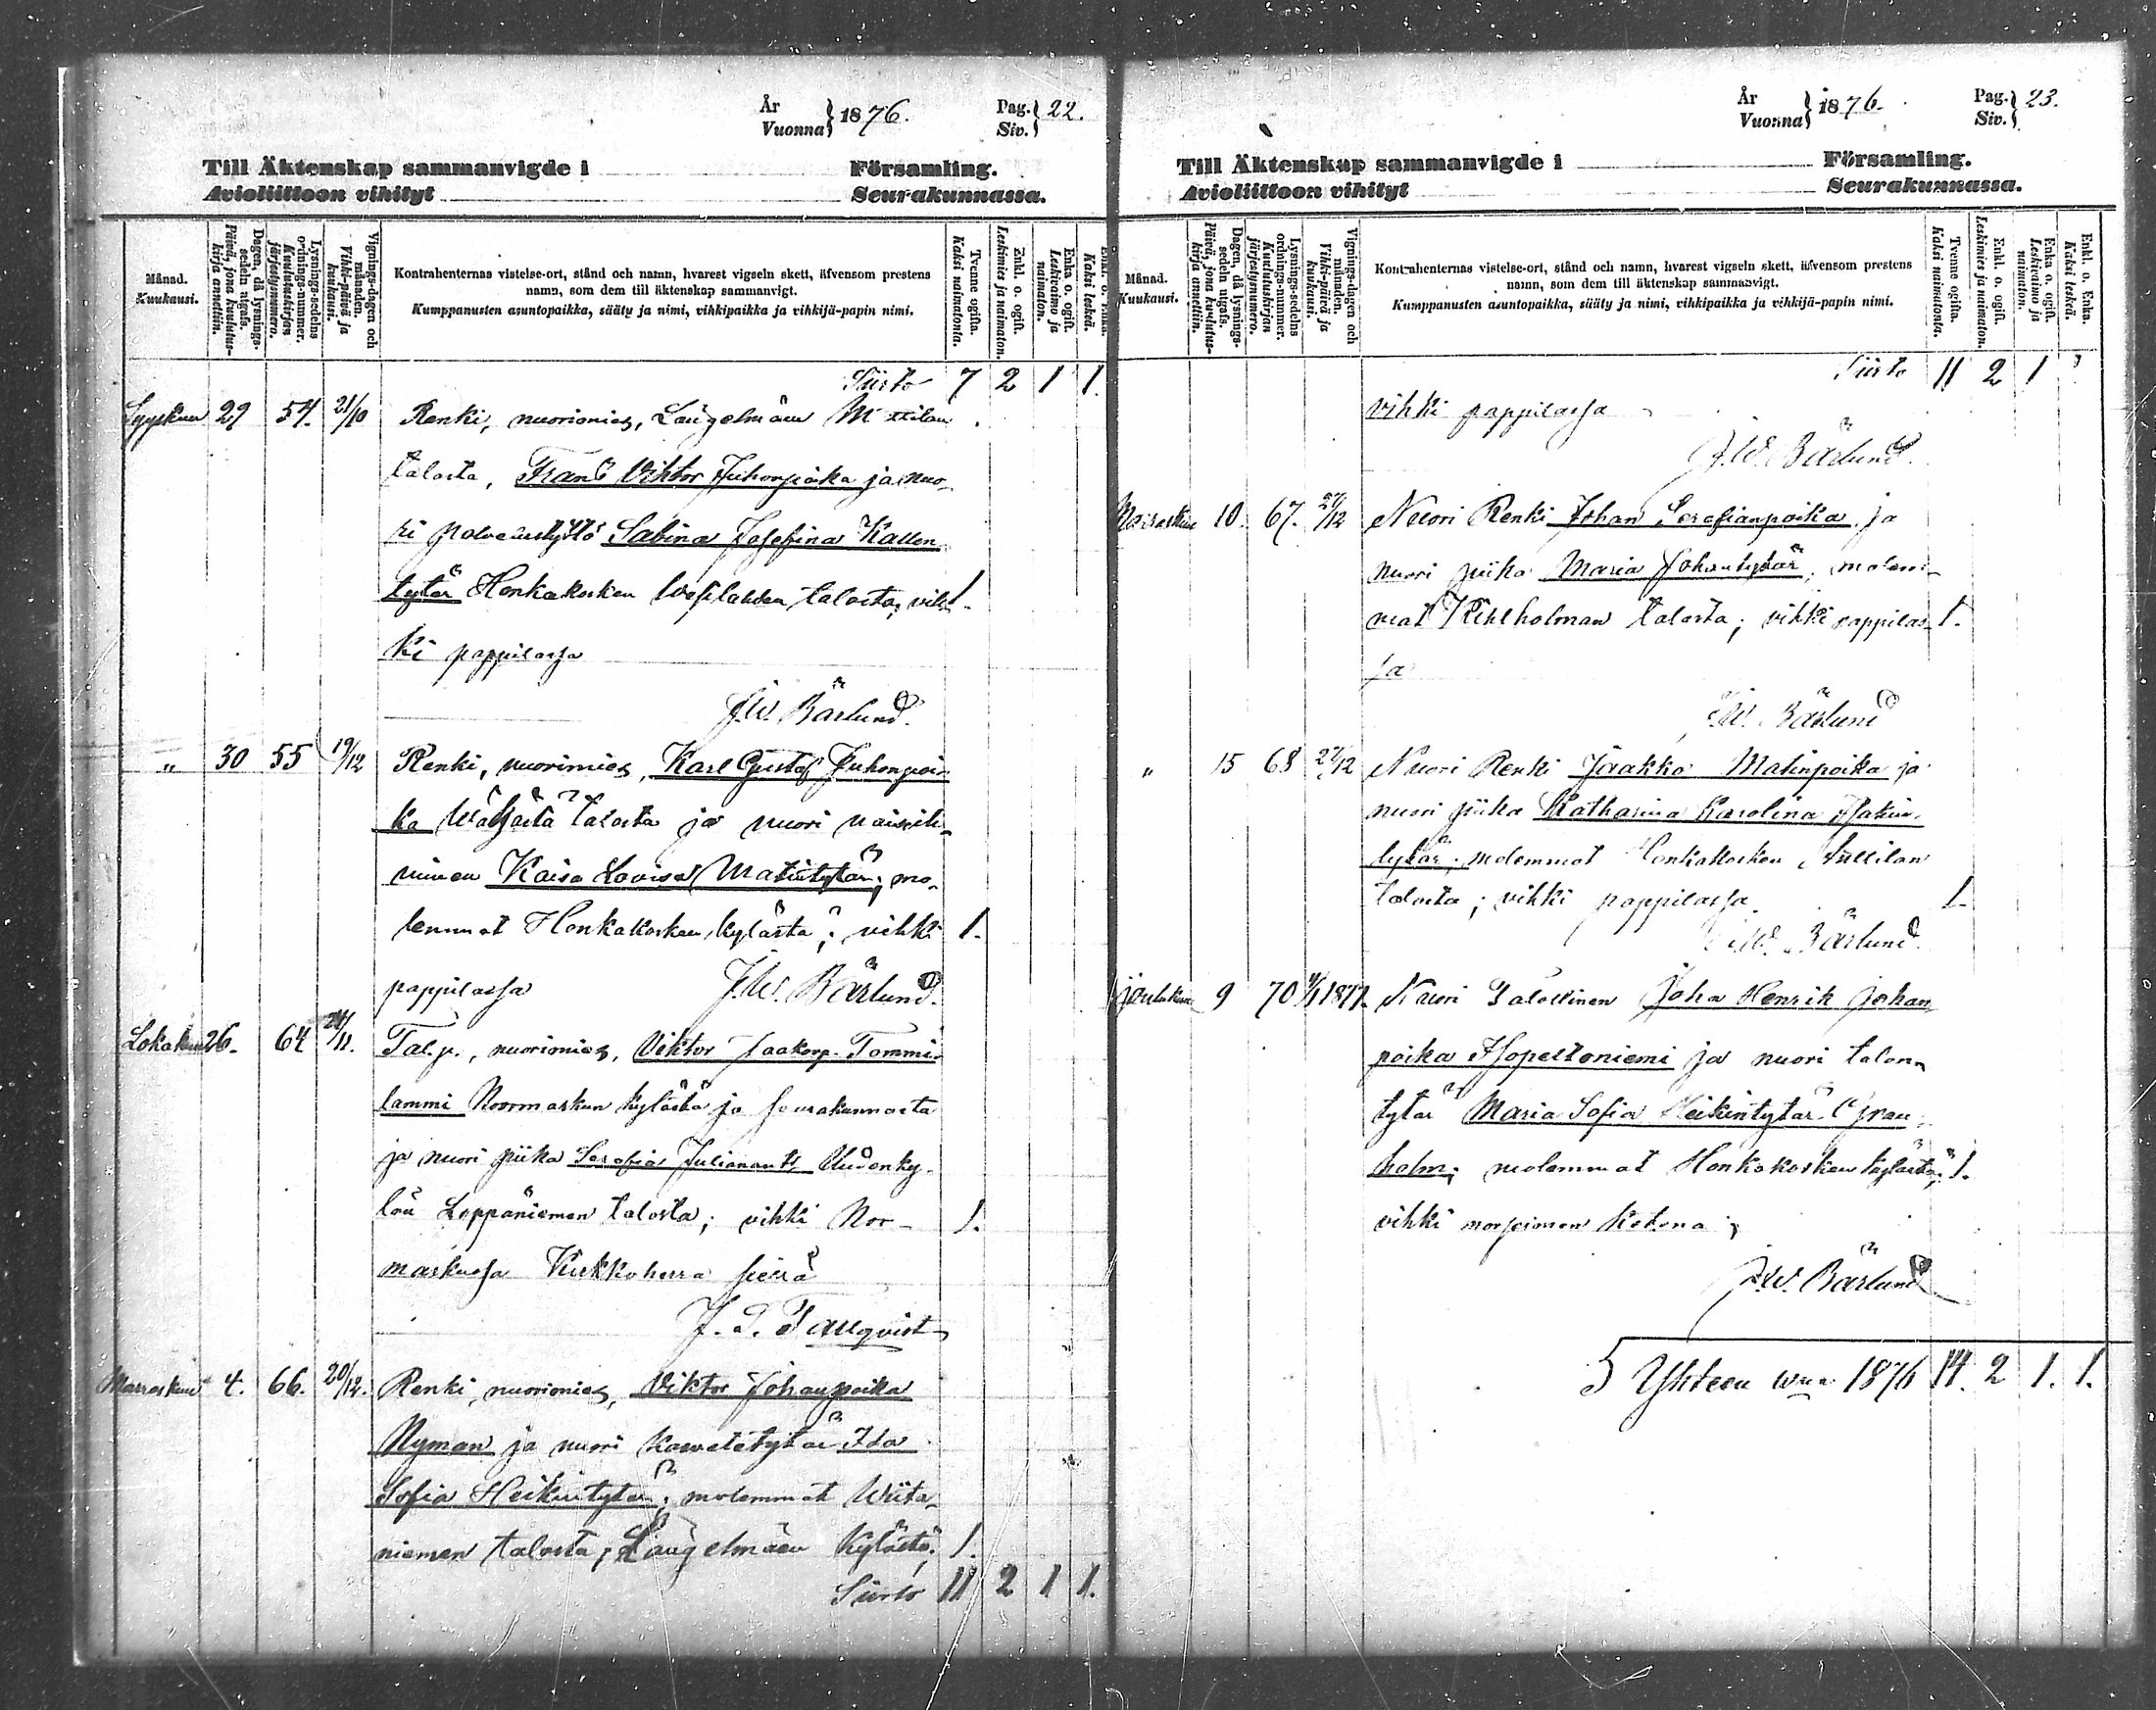 År
Vuonna } 1876.
Pag.
Siv. } 22.
Till Äktenskap sammanvigde i Församling.
Avioliittoon vihityt Seurakunnassa.
Månad.
Kuukausi.
Dagen, då lysnings-sedeln utgafs.
Päivä, jona kuulutus-kirja annettiin.
Lysnings-sedelns ordnings-nummer.
Kuulutuskirjan järjestysnumero.
Vignings-dagen och månaden.
Vihki-päivä ja kuukausi.
Kontrahenternas vistelse-ort, stånd och namn, hvarest vigseln skett, äfvensom prestens
namn, som dem till äktenskap sammanvigt.
Kumppanusten asuntopaikka, sääty ja nimi, vihkipaikka ja vihkijä-papin nimi.
Tvenne ogifta.
Kaksi naimatonta.
Enkl. o. ogift.
Leskimies ja naimaton.
Enka o. ogift.
Leskivaimo ja naimaton.
Enkl. o. Enka.
Kaksi leskeä.
Siirto 7 2 1 1.
Syyskuu 29 54. 21/10 Renki, nuorimies, Längelmäen
talosta, Frans Viktor Juhonpoika ja nuo-
ri Sabina Josefina Kallen
tytär Honkakosken talosta; vih- 1.
ki pappilassa
J.W. Bärlund.
" 30 55 19/12 Renki, nuorimies, Karl Gustaf Juhonpoi-
ka talosta ja nuori naisih-
minen Kaisa Lovisa Matintytär; mo-
lemmat Honkakosken kylästä; vihki 1.
pappilassa J.W. Bärlund.
Lokakuu 26. 64 /11. Tal.p., nuorimies, Viktor Jaakonp. Tommi-
lammi Noormarkun kylästä ja seurakunnasta
ja nuori piika Serafia Julianant. Uudenky-
län Leppäniemen talosta; vihki Nor- 1.
markussa Kirkkoherra
Marraskuu 4. 66. 20/12. Renki, nuorimies, Viktor Johanpoika
Nyman ja nuori Ida
Sofia Heikintytär; molemmat Wiita-
niemen talosta, Längelmäen kylästä; 1.
Siirto 11 2 1 1.
År
Vuonna } 1876.
Pag.
Siv. } 23.
Till Äktenskap sammanvigde i Församling.
Avioliittoon vihityt Seurakunnassa.
Månad.
Kuukausi.
Dagen, då lysnings-sedeln utgafs.
Päivä, jona kuulutus-kirja annettiin.
Lysnings-sedelns ordnings-nummer.
Kuulutuskirjan järjestysnumero.
Vignings-dagen och månaden.
Vihki-päivä ja kuukausi.
Kontrahenternas vistelse-ort, stånd och namn, hvarest vigseln skett, äfvensom prestens
namn, som dem till äktenskap sammanvigt.
Kumppanusten asuntopaikka, sääty ja nimi, vihkipaikka ja vihkijä-papin nimi.
Tvenne ogifta.
Kaksi naimatonta.
Enkl. o. ogift.
Leskimies ja naimaton.
Enka o. ogift.
Leskivaimo ja naimaton.
Enkl. o. Enka.
Kaksi leskeä.
Siirto 11 2 1
vihki pappilassa
J.W. Bärlund.
Marraskuu 10. 67. 27/12 Nuori Renki Johan Serafianpoika ja
nuori piika Maria Johantytär; molem-
mat talosta; vihki pappilas- 1.
sa
J.W. Bärlund
" 15 68 27/12 Nuori Renki Jaakko Matinpoika ja
nuori piika Katharina Karolina Isakin-
tytär; molemmat Honkakosken
talosta; vihki pappilassa. 1.
J.W. Bärlund.
Joulukuu 9 70 1877. Nuori Talollinen Joha Henrik Johan
poika ja nuori talon-
tytär Maria Sofia Heikintytär Gran-
holm; molemmat Honkakosken kylästä; 1.
vihki morsiamen kotona;
J.W. Bärlund
Yhteen wna 1876 14. 2 1. 1.